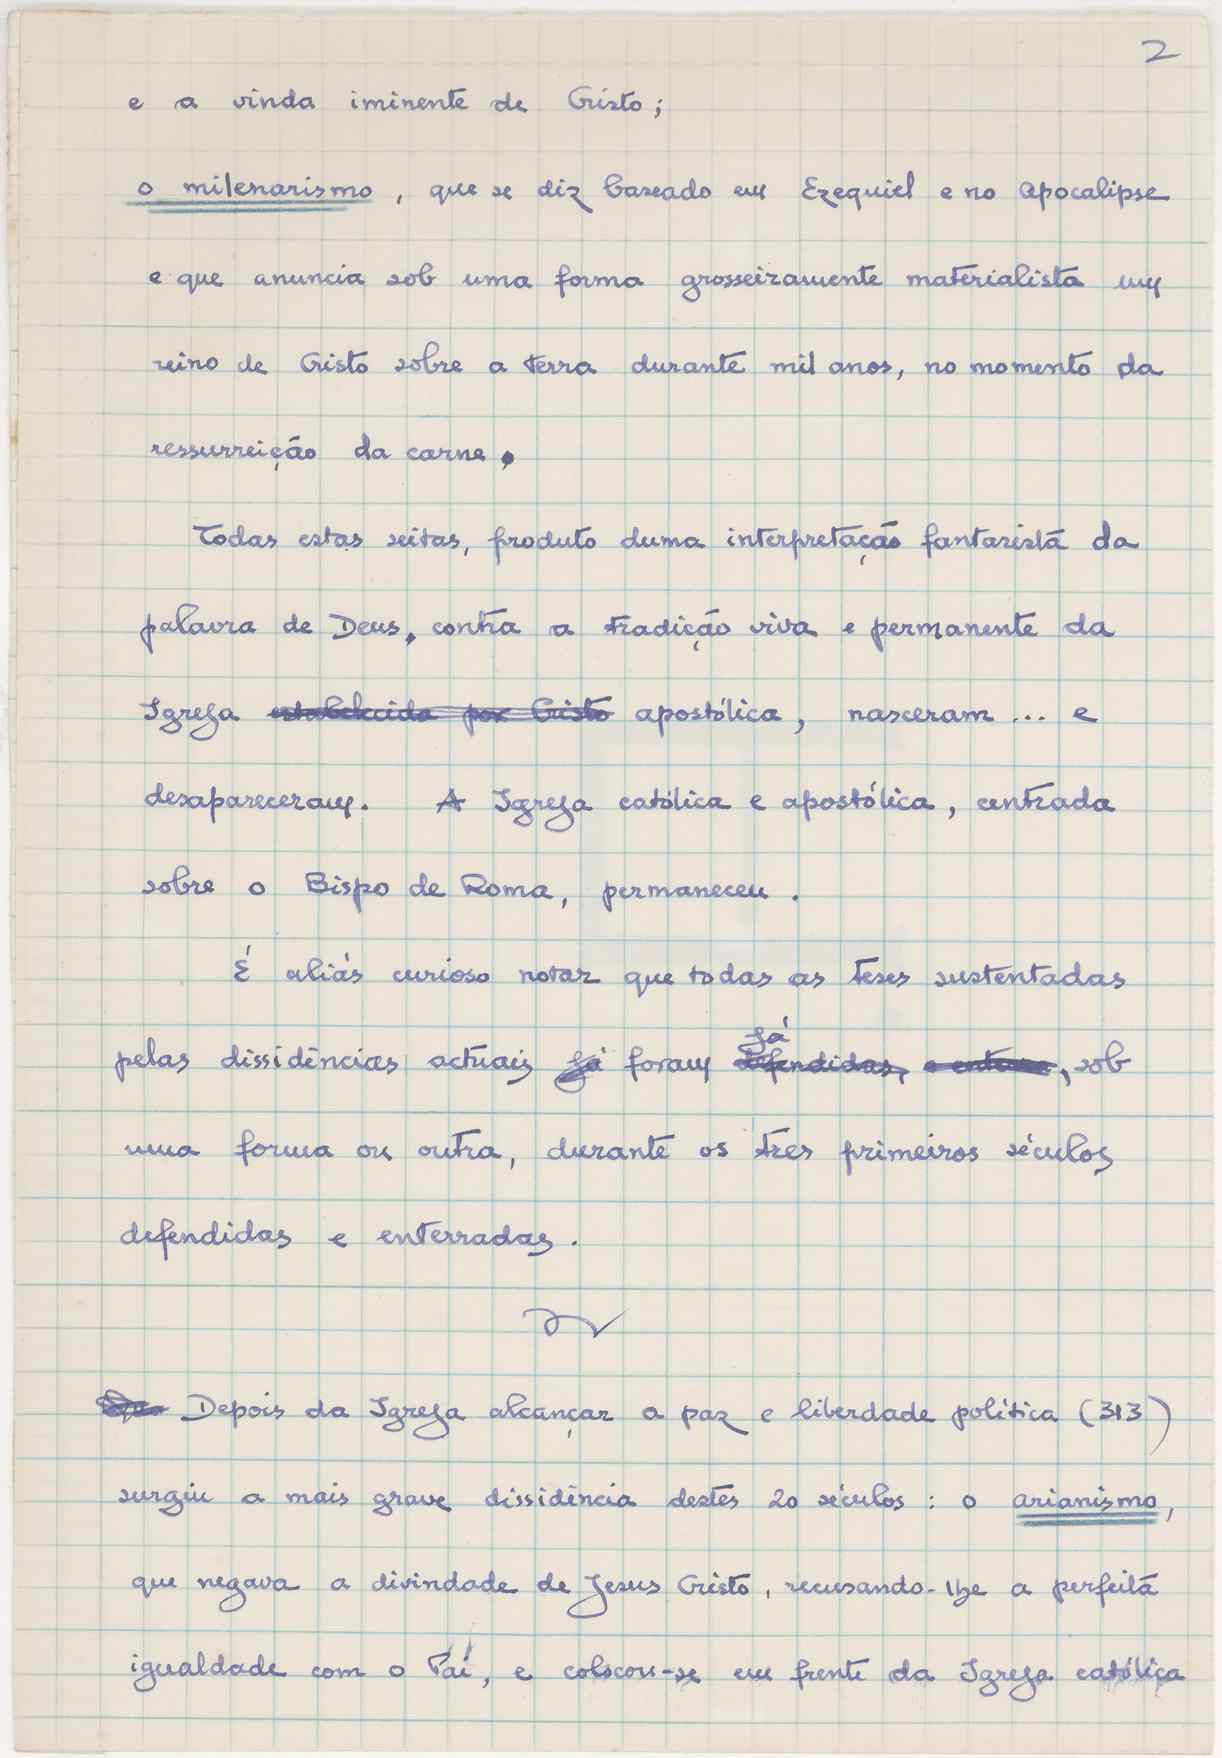 2
e a vinda iminente de Cristo;
o milenarismo, que se diz baseado em Ezequiel e no Apocalipse
e que anuncia sob uma forma grosseiramente materialista um
reino de Cristo sobre a terra durante mil anos, no momento da
ressurreição da carne.
Todas estas seitas, produto duma interpretação fantasista da
palavra de Deus, contra a tradição viva e permanente da
Igreja estabelecida por Cristo apostólica, nasceram ... e
desapareceram. A Igreja católica e apostólica, centrada
sobre o Bispo de Roma, permaneceu.
É aliás curioso notar que todas as teses sustentadas
já
pelas dissidências actuais já foram defendidas, e , sob
uma forma ou outra, durante os tres primeiros séculos
defendidas e enterradas.
Depois da Igreja alcançar a paz e liberdade política (313)
surgiu a mais grave dissidência destes 20 séculos: o arianismo,
que negava a divindade de Jesus Cristo, recusando-lhe a perfeita
igualdade com o Pai, e colocou-se em frente da Igreja católica